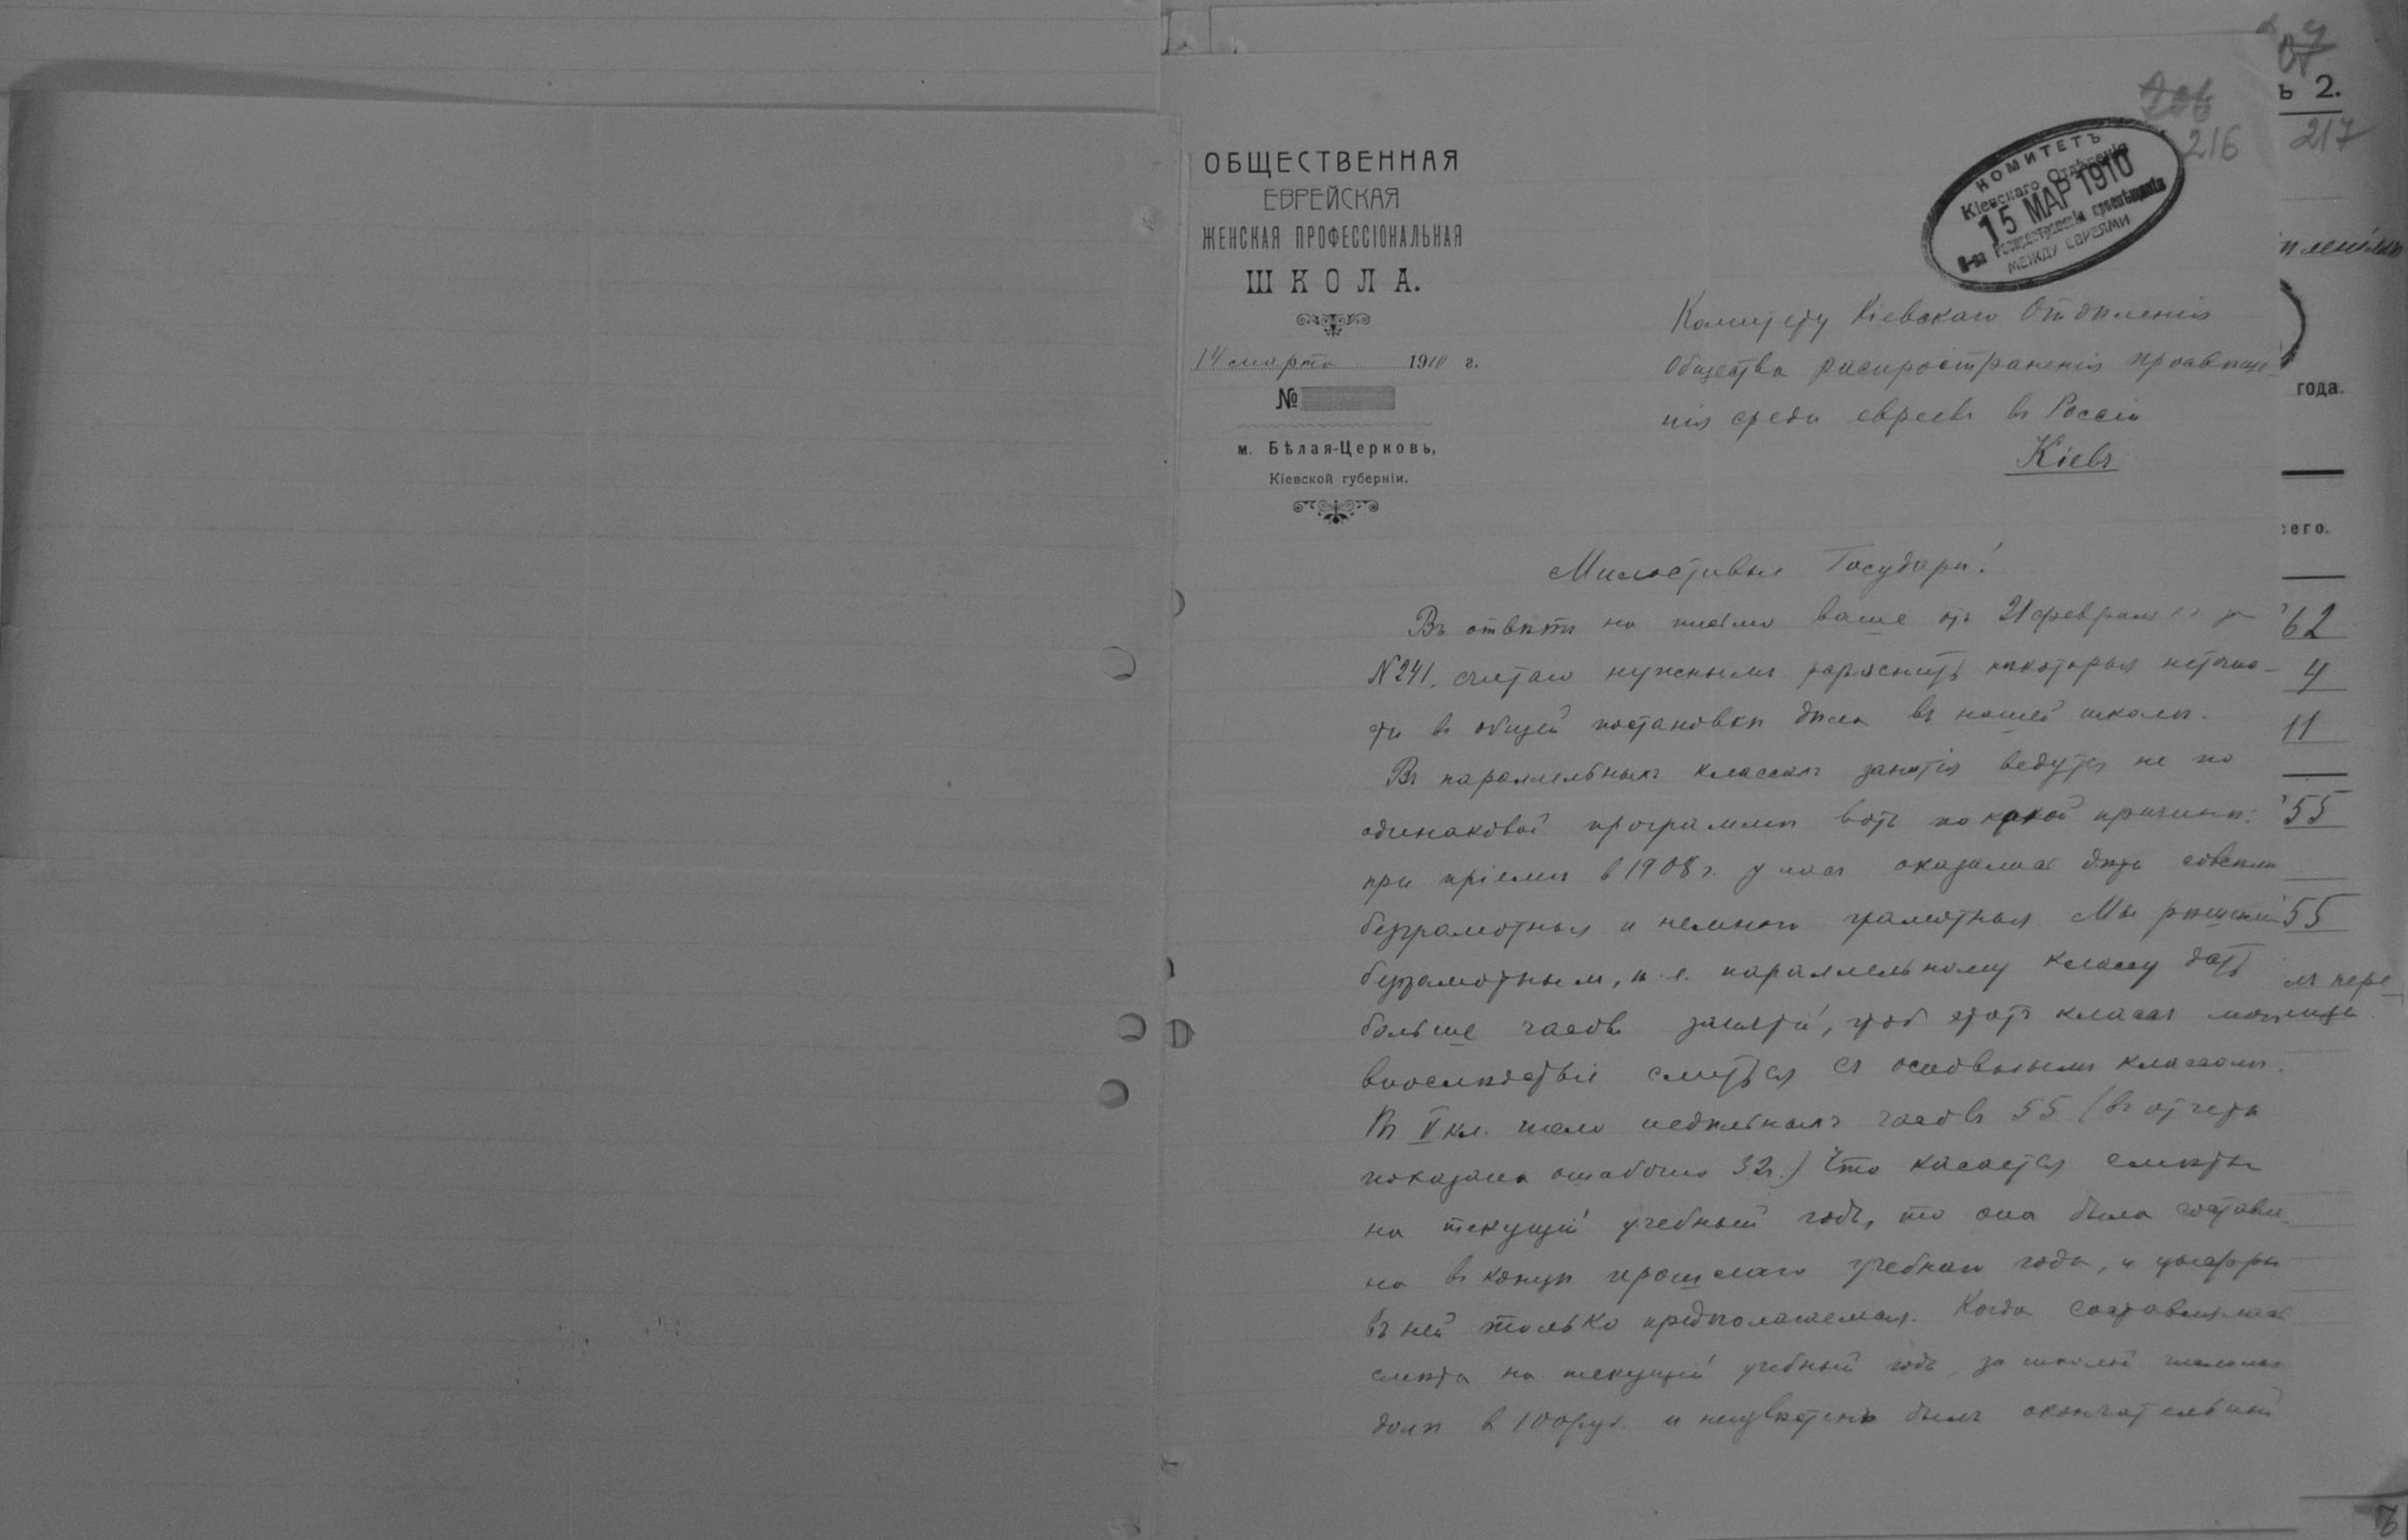 ОБЩЕСТВЕННАЯ
ЕВРЕЙСКАЯ
ЖЕНСКАЯ ПРОФЕССІОНАЛЬНАЯ
ШКОЛА.
14 марта 1910 г.
№
м. Бѣлая-Церковь,
Кіевской губерніи.
206
216
КОМИТЕТЪ
Кіевскаго Отдѣленія
15 МАР 1910
О-ва распространенія просвѣщенія
МЕЖДУ ЕВРЕЯМИ
Комитету Кіевскаго Отдѣленія
Общества распространенія просвѣще-
нія среди евреевъ въ Россіи
Кіевъ
Милостивые Государи!
Въ отвѣтъ на письмо ваше отъ 21 февраля за
№ 241, считаю нужнымъ разъяснить нѣкоторыя неточно-
сти въ общей постановкѣ дѣла въ нашей школѣ.
Въ параллельныхъ классахъ занятія ведутся не по
одинаковой программѣ вотъ по какой причинѣ:
при пріемѣ в 1908 г. у насъ оказались дѣти совсѣмъ
безграмотныя и немного грамотныя. Мы рѣшили
безграмотнымъ, т. е. параллельному классу дать
больше часовъ занятій, чтоб этотъ классъ могъ
впослѣдствіе слиться съ основнымъ классомъ.
Въ V кл. число недѣльныхъ часовъ 55 (въ отчетѣ
показано ошибочно 32.) Что касается смѣты
на текущій учебный годъ, то она была составле-
на въ концѣ прошлаго учебнаго года, и цыфры
въ ней только предполагаемыя. Когда составлялась
смѣта на текущій учебный годъ, за школой числился
долгъ в 100 руб. и неизвѣстенъ былъ окончательный
ъ 2.
217
года.
его.
62
4
11
55
55
мъ пере-